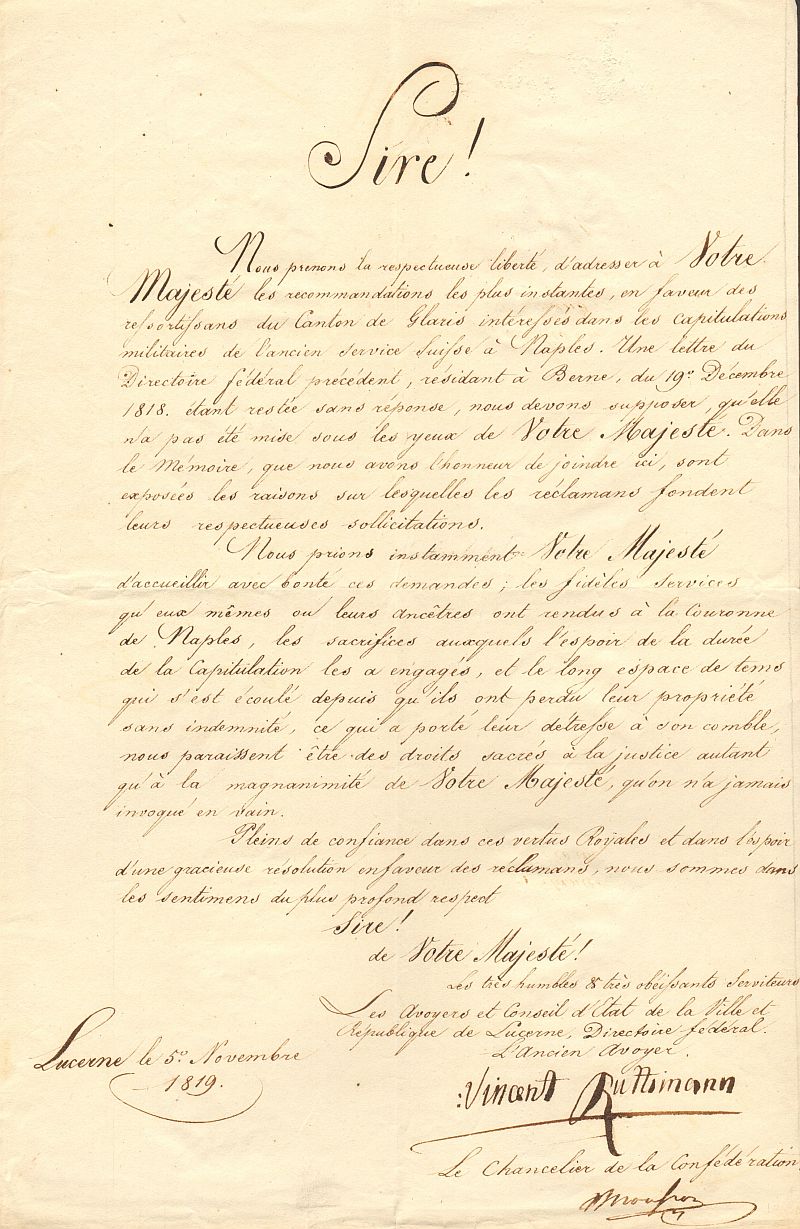 Sire!
Nous prenons la respectueuse liberté, d'adresser à Votre
Majesté les recommandations les plus instantes, en faveur des
ressortissans du Canton de Glaris intéressés dans les capitulations
militaires de l'ancien service Suisse à Naples. Une lettre du
Directoire fédéral précédent, résidant à Berne, du 19e Décembre
1818. étant restée sans réponse, nous devons supposer, qu'elle
n'a pas été mise sous les yeux de Votre Majesté. Dans
le Mémoire, que nous avons l'honneur de joindre ici, sont
exposées les raisons sur lesquelles les réclamans fondent
leurs respectueuses sollicitations.
Nous prions instamment Votre Majesté
d'accueillir avec bonté ces demandes; les fidèles services
qu'eux mêmes ou leurs ancêtres ont rendus à la Couronne
de Naples, les sacrifices auxquels l'espoir de la durée
de la Capitulation les a engagés, et le long espace de tems
qui s'est écoulé depuis qu'ils ont perdu leur propriété
sans indemnité, ce qui a porté leur détresse à son comble,
nous paraissent être des droits sacrés à la justice autant
qu'à la magnanimité de Votre Majesté, qu'on n'a jamais
invoqué en vain.
Pleins de confiance dans ces vertus Royales et dans l'espoir
d'une gracieuse résolution en faveur des réclamans, nous sommes dans
les sentimens du plus profond respect
Sire!
de Votre Majesté!
Les très humbles & très obéissants Serviteurs
Les Avoyers et Conseil d'Etat de la Ville et
République de Lucerne, Directoire fédéral.
L'Ancien Avoyer.
Lucerne le 5e Novembre
1819.
Vincent Ruttimann
Le Chancelier de la Confédération
Mousson